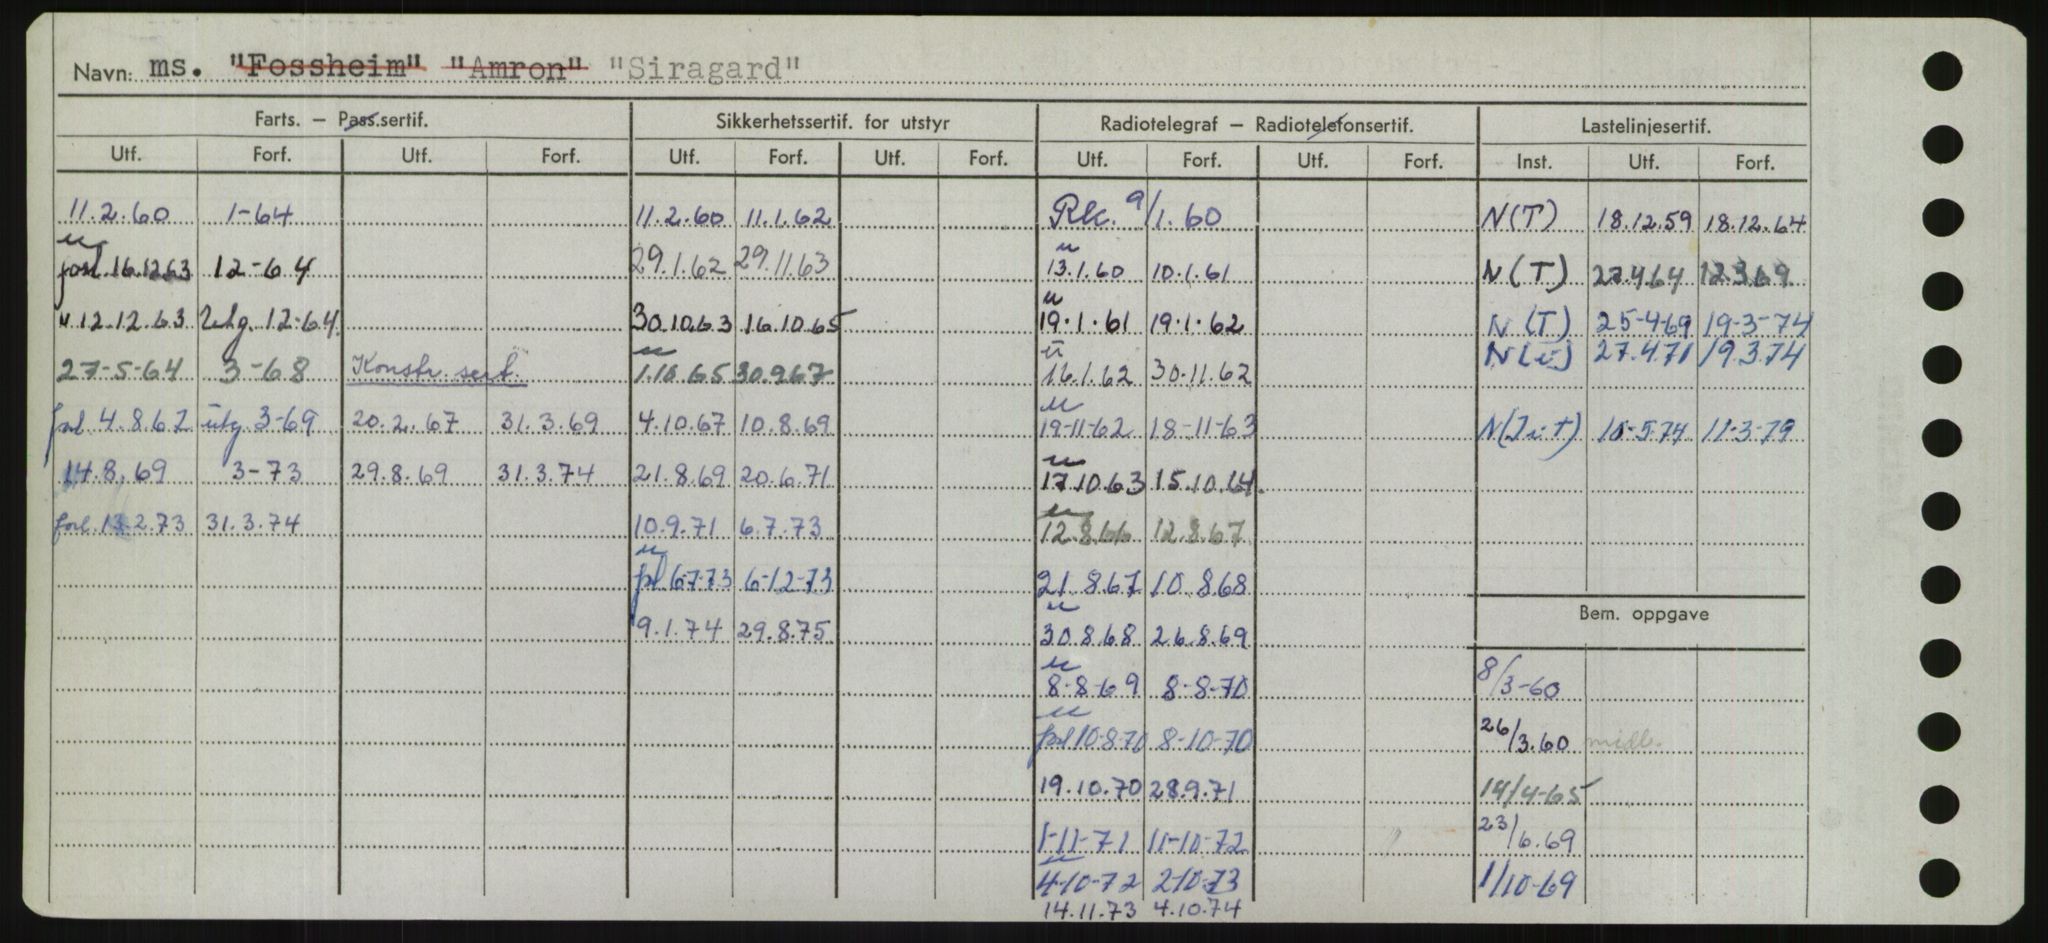 Navn: ms. "Fossheim" "Amron" "Siragard"
Farts. — Pass.sertif. Sikkerhetssertif. for utstyr Radiotelegraf — Radiotelefonsertif. Lastelinjesertif.
Utf. Forf. Utf. Forf. Utf. Forf. Utf. Forf. Utf. Forf. Utf. Forf. Inst. Utf. Forf.
11.2.60 1-64 11.2.60 11.1.62 Rk. 9/1.60 N(T) 18.12.59 18.12.64
forl. 16.12.63 12-64 29.1.62 29.11.63 13.1.60 10.1.61 N(T) 27.4.64 12.3.69
12.12.63 Utg. 12-64 30.10.63 16.10.65 19.1.61 19.1.62 N(T) 25-4-69 19-3-74
N(u) 27.4.71 19.3.74
27-5-64 3-68 Konstr. sert. 1.10.65 30.9.67 16.1.62 30.11.62
forl. 4.8.67 utg. 3-69 20.2.67 31.3.69 4.10.67 10.8.69 19-11-62 18-11-63 N(Int) 10-5.74 11-3-79
14.8.69 3-73 29.8.69 31.3.74 21.8.69 20.6.71 17.10.63 15.10.64.
forl. 13.2.73 31.3.74 10.9.71 6.7.73 12.8.66 12.8.67
forl 6-7-73 6-12-73 21.8.67 10.8.68
Bem. oppgave
9.1.74 29.8.75 30.8.68 26.8.69
8-8-69 8-8-70 8/3-60
forl 10-8-70 8-10-70 26/3.60 midl.
19.10.70 28.9.71 14/4-65
1-11-71 11-10-72 23/6.69
4-10-72 2-10-73 1/10-69
14.11.73 4.10.74